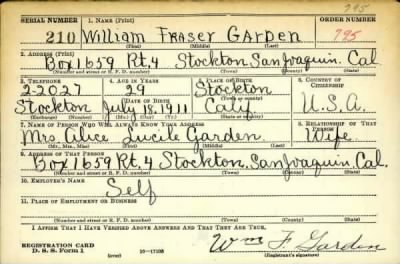 795
SERIAL NUMBER 1. NAME (Print) ORDER NUMBER
210 William Fraser Garden 795
(First) (Middle) (Last)
2. ADDRESS (Print)
Box 1659 Rt. 4 Stockton, San Joaquin, Cal.
(Number and street or R. F. D. number) (Town) (County) (State)
3. TELEPHONE 4. AGE IN YEARS 5. PLACE OF BIRTH 6. COUNTRY OF CITIZENSHIP
2-2027 29 Stockton
DATE OF BIRTH (Town or county)
Stockton July 18, 1911 Caly. U.S.A.
(Exchange) (Mo.) (Day) (Yr.) (State or country)
7. NAME OF PERSON WHO WILL ALWAYS KNOW YOUR ADDRESS 8. RELATIONSHIP OF THAT PERSON
Mrs Lucile Garden Wife
(Mr., Mrs., Miss) (First) (Middle) (Last)
9. ADDRESS OF THAT PERSON
Box 1659 Rt. 4 Stockton, San Joaquin Cal.
(Number and street or R. F. D. number) (Town) (County) (State)
10. EMPLOYER'S NAME
Self
11. PLACE OF EMPLOYMENT OR BUSINESS
(Number and street or R. F. D. number) (Town) (County) (State)
I AFFIRM THAT I HAVE VERIFIED ABOVE ANSWERS AND THAT THEY ARE TRUE.
REGISTRATION CARD
D. S. S. Form 1 Wm F Garden
(Registrant's signature)